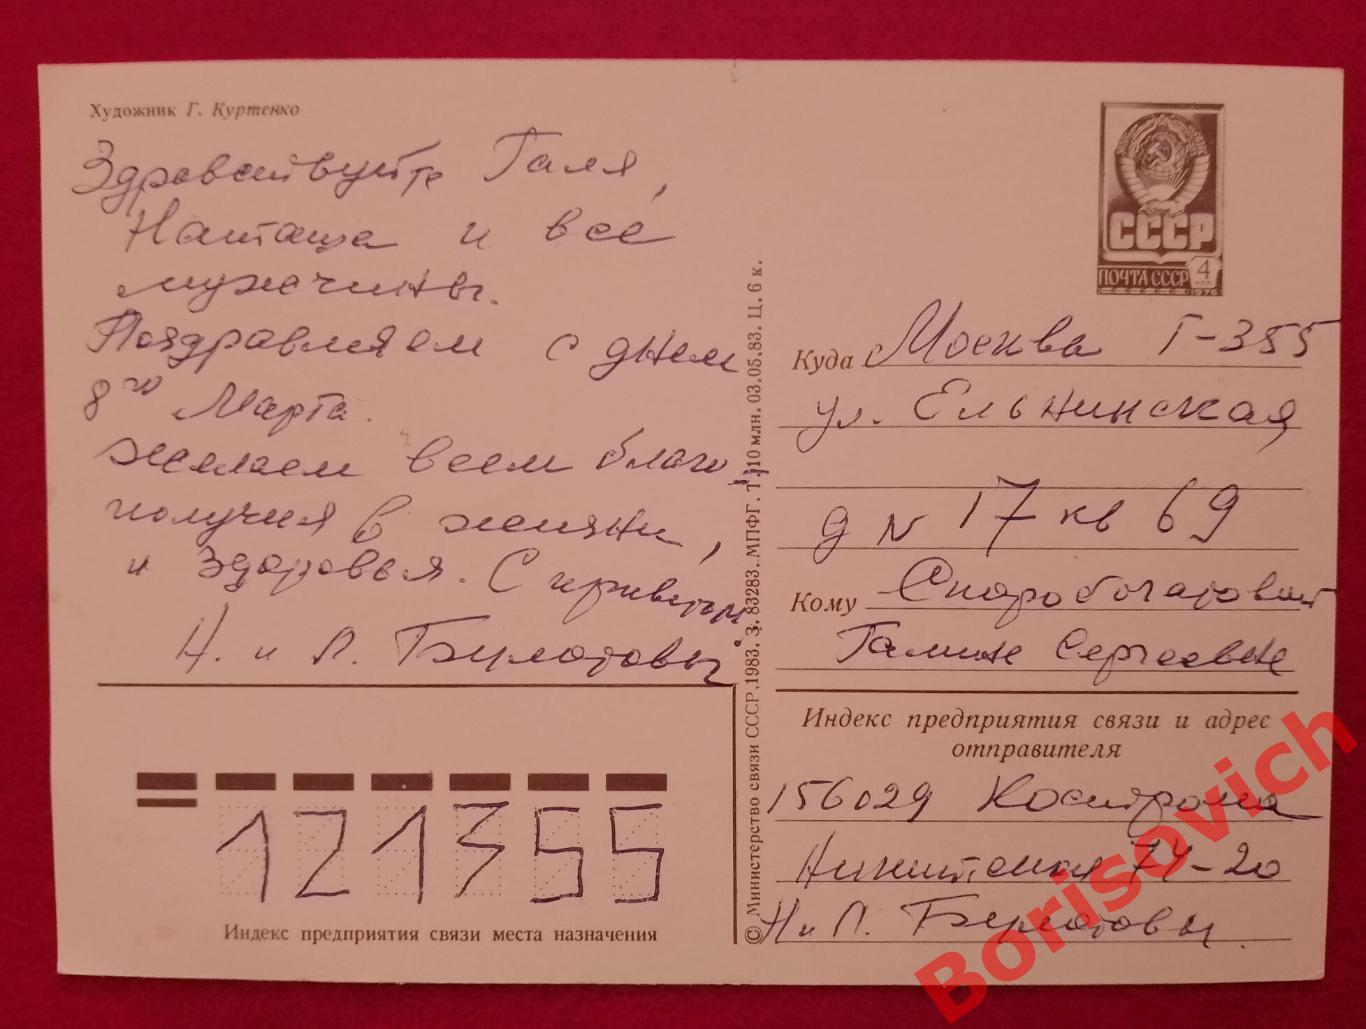 Художник Г. Куртенко
Здравствуйте Галя,
Наташа и все
мужчины.
Поздравляем с днем
8го Марта.
желаем всем благо
получия в жизни,
и здоровья. С приветом
Н. и Л. Булатовы
СССР
ПОЧТА СССР 4
1976
Куда Москва Г-355
ул. Ельнинская
д N 17 кв 69
Кому Скоробогатовой
Галине Сергеевне
Индекс предприятия связи и адрес
отправителя
156029 Кострома
Никитская 74-20
Н и Л. Булатовы.
121355
Индекс предприятия связи места назначения
© Министерство связи СССР, 1983. З. 83283. МПФГ. Т. 10 млн. 03.05.83. Ц. 6 к.
Borisovich